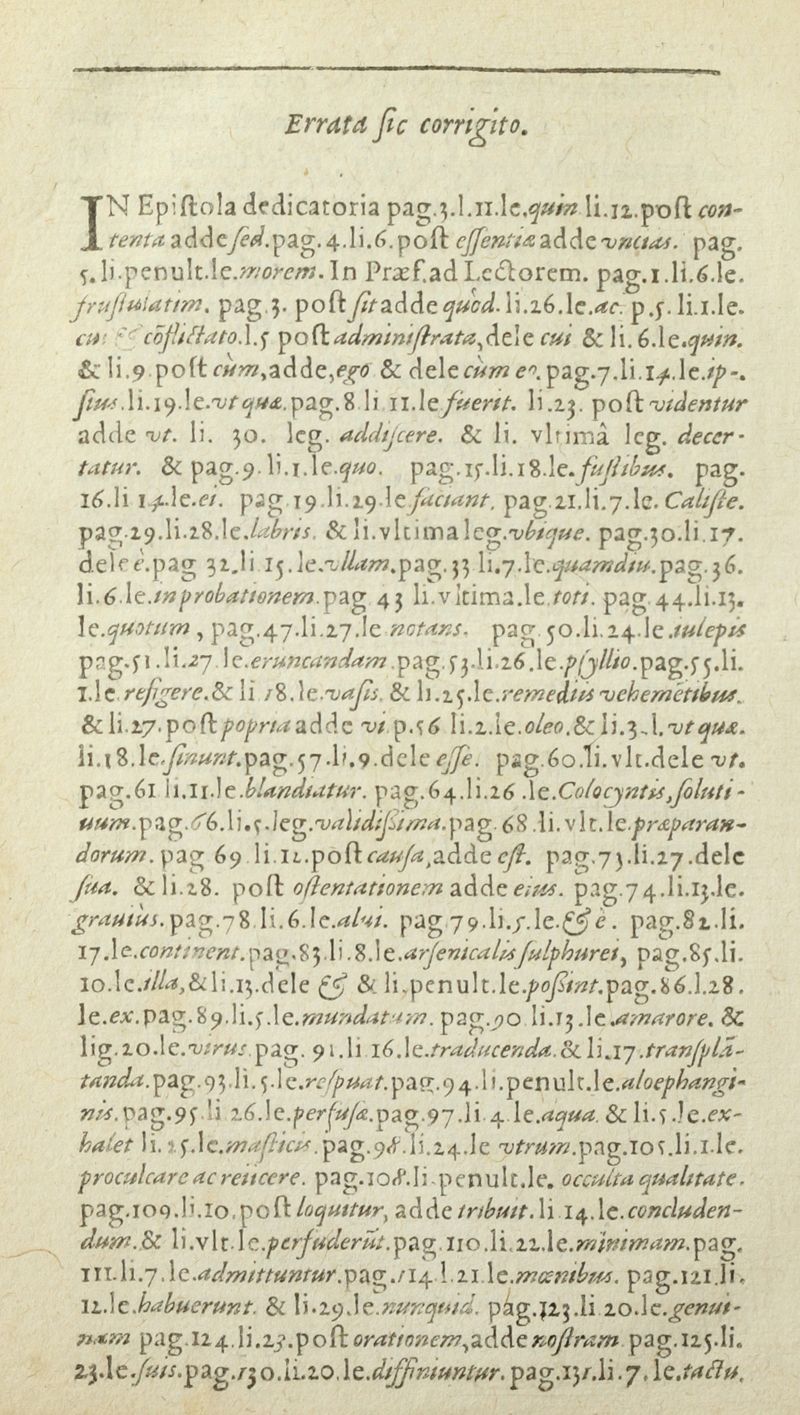 Errata ſic corrigito.
IN Epiſtola dedicatoria pag.3.l.11.le.quin li.12.poſt con-
tenta adde ſed.pag.4.li.6.poſt eſſentiæ adde vnctas. pag.
5.li.penult.le.morem. In Præf.ad Lectorem. pag.1.li.6.le.
fruſtulatim. pag.3. poſt ſit adde quod. li.26.le.ac. p.5. li.1.le.
cõflictato.l.5 poſt adminiſtrata, dele cui & li.6.le.quin.
& li.9.poſt cùm,adde,ego & dele cùm eo. pag.7.li.14.le.ip-
ſius.li.19.le.vt quæ.pag.8 li 11.le fuerit. li.23. poſt videntur
adde vt. li. 30. leg. addijcere. & li. vltimâ leg. decer-
tatur. & pag.9.li.1.le.quo. pag.15.li.18.le.fuſtibus. pag.
16.li 14.le.ei. pag 19.li.29.le faciant. pag.21.li.7.le. Caliſte.
pag.29.li.28.le.labris. & li.vltima leg.vbique. pag.30.li.17.
dele è.pag 32.li 15.le.vllam.pag.33 li.7.le.quamdiu.pag.36.
li.6.le.improbationem.pag 43 li.vltima.le.toti. pag.44.li.13.
le.quotum , pag.47.li.27.le notans. pag 50.li.24.le.iulepis
pag.51.li.27 le.eruncandam.pag.53.li.26.le.pſyllio.pag.55.li.
1.le refigere.& li 18.le.vaſis. & li.25.le.remediis vehemẽtibus.
& li.27.poſt popria adde vi p.56 li.2.le.oleo.& li.3.l.vt quæ.
li.18.le.ſinunt.pag.57.li.9.dele eſſe. pag.60.li.vlt.dele vt.
pag.61 li.11.le.blandiatur. pag.64.li.26.le.Colocyntis,ſoluti-
uum.pag.66.li.5.leg.validiſsima.pag.68.li.vlt.le.præparan-
dorum. pag 69 li.12.poſt cauſa,adde eſt. pag.73.li.27.dele
ſua. & li.28. poſt oſtentationem adde eius. pag.74.li.13.le.
grauius.pag.78 li.6.le.alui. pag.79.li.5.le.& è. pag.82.li.
17.le.continent.pag.83.li.8.le.arſenicalis ſulphurei, pag.85.li.
10.le.illa,& li.13.dele & & li.penult.le.poſsint.pag.86.l.28.
le.ex.pag.89.li.5.le.mundatum. pag.90 li.13.le.amarore. &
lig.20.le.virus.pag. 91.li 16.le.traducenda.& li.17.tranſplã-
tanda.pag.93.li.5.le.reſpuat.pag.94.li.penult.le.aloephangi-
nis.pag.95 li 26.le.perfuſæ.pag.97.li.4.le.aqua. & li.5.le.ex-
halet li.25.le.maſticis.pag.98.li.24.le vtrum.pag.105.li.1.le.
proculcare ac reiicere. pag.108.li.penult.le. occulta qualitate.
pag.109.li.10.poſt loquitur, adde tribuit. li 14.le.concluden-
dum.& li.vlt.le.perfuderūt.pag.110.li.22.le.minimam.pag.
111.li.7.le.admittuntur.pag.114.l.21.le.mœnibus. pag.121.li.
12.le.habuerunt. & li.29.le.nunquid. pag.123.li 20.le.genui-
nam pag.124.li.23.poſt orationem,adde noſtram pag.125.li.
23.le.ſuis.pag.130.li.20.le.diffiniuntur.pag.131.li.7.le.tactu.